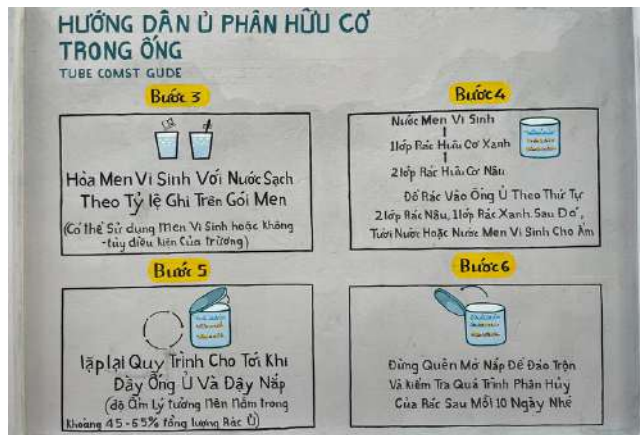 HƯỚNG DẪN Ủ PHÂN HỮU CƠ
TRONG ỐNG
TUBE COMST GUDE
Bước 3
Hòa Men Vi Sinh Với Nước Sạch
Theo Tỷ lệ Ghi Trên Gói Men
(Có thể Sử dụng Men Vi Sinh hoặc không
-tùy điều kiện Của trường)
Bước 4
Nước Men Vi Sinh
1 lớp Rác Hữu Cơ Xanh
2 lớp Rác Hữu Cơ Nâu
Đổ Rác Vào Ống Ủ Theo Thứ Tự
2 lớp Rác Nâu, 1 lớp Rác Xanh. Sau Đó,
Tưới Nước Hoặc Nước Men Vi Sinh Cho Ẩm
Bước 5
lặp lại Quy Trình Cho Tới Khi
Đầy Ống Ủ Và Đậy Nắp
(độ Ẩm Lý tưởng Nên Nằm trong
Khoảng 45-65% tổng lượng Rác Ủ)
Bước 6
Đừng Quên Mở Nắp Để Đảo Trộn
Và kiểm Tra Quá Trình Phân Hủy
Của Rác Sau Mỗi 10 Ngày Nhé